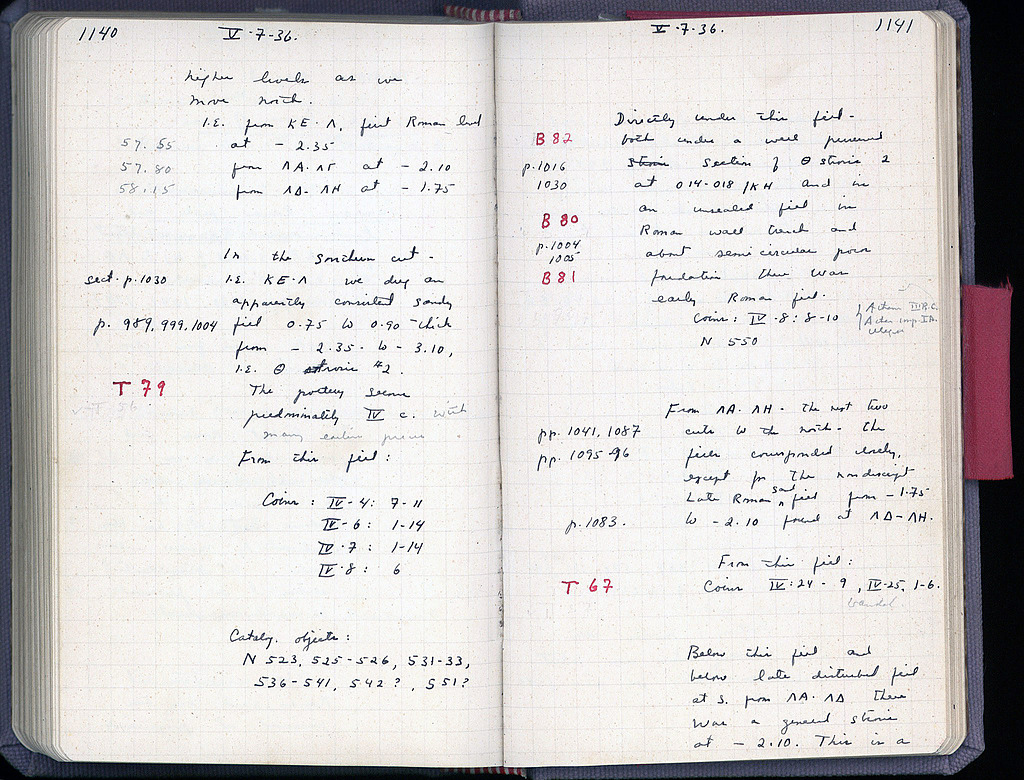 1140
V-7-36.
higher levels as we
move north.
I.E. from KE-Λ, first Roman level
57.55 at - 2.35
57.80 from ΛA-ΛΓ at - 2.10
58.15 from ΛΔ-ΛH at - 1.75
In the southern cut -
sect. p.1030 I.E. KE-Λ we dug an
apparently consisted sandy
p. 989, 999, 1004 fill 0.75 to 0.90 thick
from - 2.35 - to - 3.10,
I.E. Θ strosis #2.
T 79 The pottery seems
predominatly IV c. with
many earlier pieces.
From this fill:
Coins: IV-4: 7-11
IV-6: 1-14
IV-7: 1-14
IV-8: 6
Catalg. objects:
N 523, 525-526, 531-33,
536-541, 542?, 551?
V-7-36.
1141
Directly under this fill -
B 82 both under a well preserved
p.1016 section of Θ strosis 2
1030 at 014-018/KH and in
an unsealed fill in
B 80 Roman wall trench and
p.1004 about semicircular poros
1005
B 81 foundation there was
early Roman fill.
Coins: IV-8: 8-10
N 550
From ΛA-ΛH - the next two
pp. 1041, 1087 cuts to the north - the
pp. 1095-96 fills corresponded closely,
except for the nondescript
Late Roman sand fill from - 1.75
p.1083. to - 2.10 found at ΛΔ-ΛH.
From this fill:
T 67 Coins IV: 24 - 9, IV-25, 1-6.
Vandal.
Below this fill and
below late disturbed fill
at S. from ΛA-ΛΔ there
was a general strosis
at - 2.10. This is a